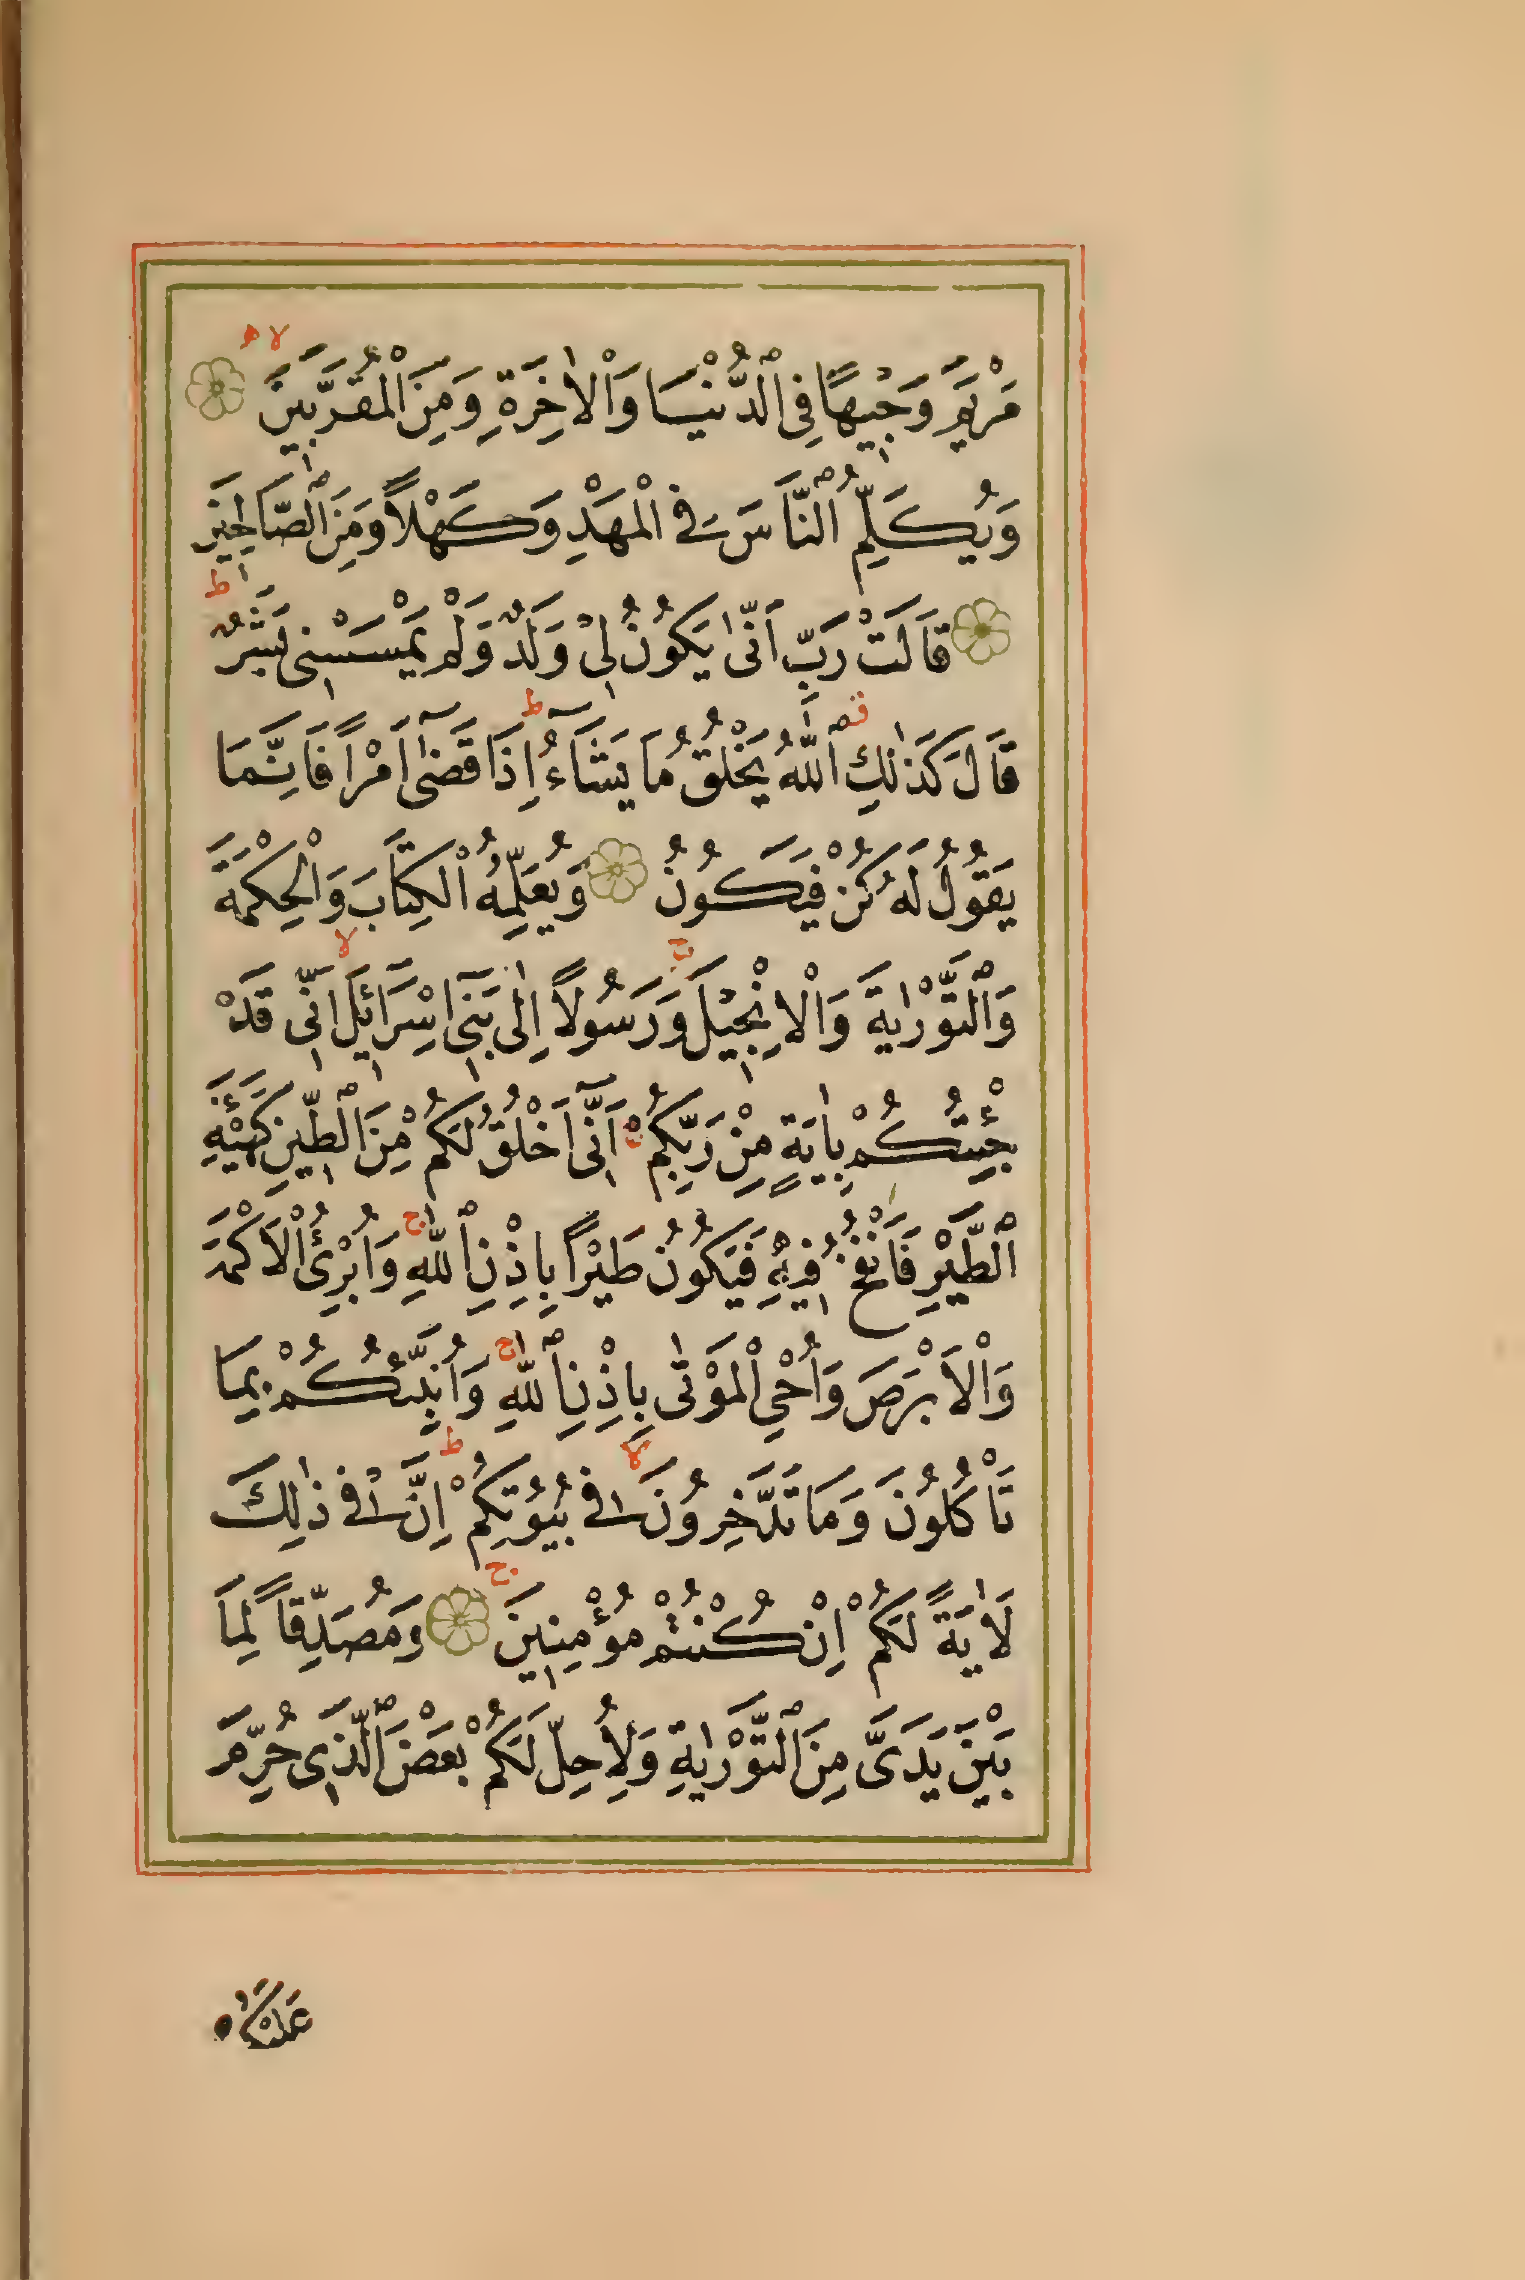 مَرْيَمَ وَجِيهًا فِي ٱلدُّنْيَا وَٱلْاٰخِرَةِ وَمِنَ ٱلْمُقَرَّبِينَ
وَيُكَلِّمُ ٱلنَّاسَ فِي ٱلْمَهْدِ وَكَهْلاً وَمِنَ ٱلصَّالِحِينَ
قَالَتْ رَبِّ اَنّٰى يَكُونُ لِي وَلَدٌ وَلَمْ يَمْسَسْنِي بَشَرٌ
قَالَ كَذٰلِكِ ٱللّٰهُ يَخْلُقُ مَا يَشَآءُ اِذَا قَضٰٓى اَمْرًا فَاِنَّمَا
يَقُولُ لَهُ كُنْ فَيَكُونُ وَيُعَلِّمُهُ ٱلْكِتَابَ وَٱلْحِكْمَةَ
وَٱلتَّوْرٰيةَ وَٱلْاِنْجِيلَ وَرَسُولاً اِلٰى بَنِٓي اِسْرَائِلَ اَنِّي قَدْ
جِئْتُكُمْ بِاٰيَةٍ مِنْ رَبِّكُمْ اَنِّٓي اَخْلُقُ لَكُمْ مِنَ ٱلطِّينِ كَهَيْئَةِ
ٱلطَّيْرِ فَاَنْفُخُ فِيهِ فَيَكُونُ طَيْرًا بِاِذْنِ ٱللّٰهِ وَاُبْرِئُ ٱلْاَكْمَهَ
وَٱلْاَبْرَصَ وَاُحْيِ ٱلْمَوْتٰى بِاِذْنِ ٱللّٰهِ وَاُنَبِّئُكُمْ بِمَا
تَاْكُلُونَ وَمَا تَدَّخِرُونَ فِي بُيُوتِكُمْ اِنَّ فِي ذٰلِكَ
لَاٰيَةً لَكُمْ اِنْ كُنْتُمْ مُؤْمِنِينَ وَمُصَدِّقًا لِمَا
بَيْنَ يَدَيَّ مِنَ ٱلتَّوْرٰيةِ وَلِاُحِلَّ لَكُمْ بَعْضَ ٱلَّذِي حُرِّمَ
عَلَيْكُمْ